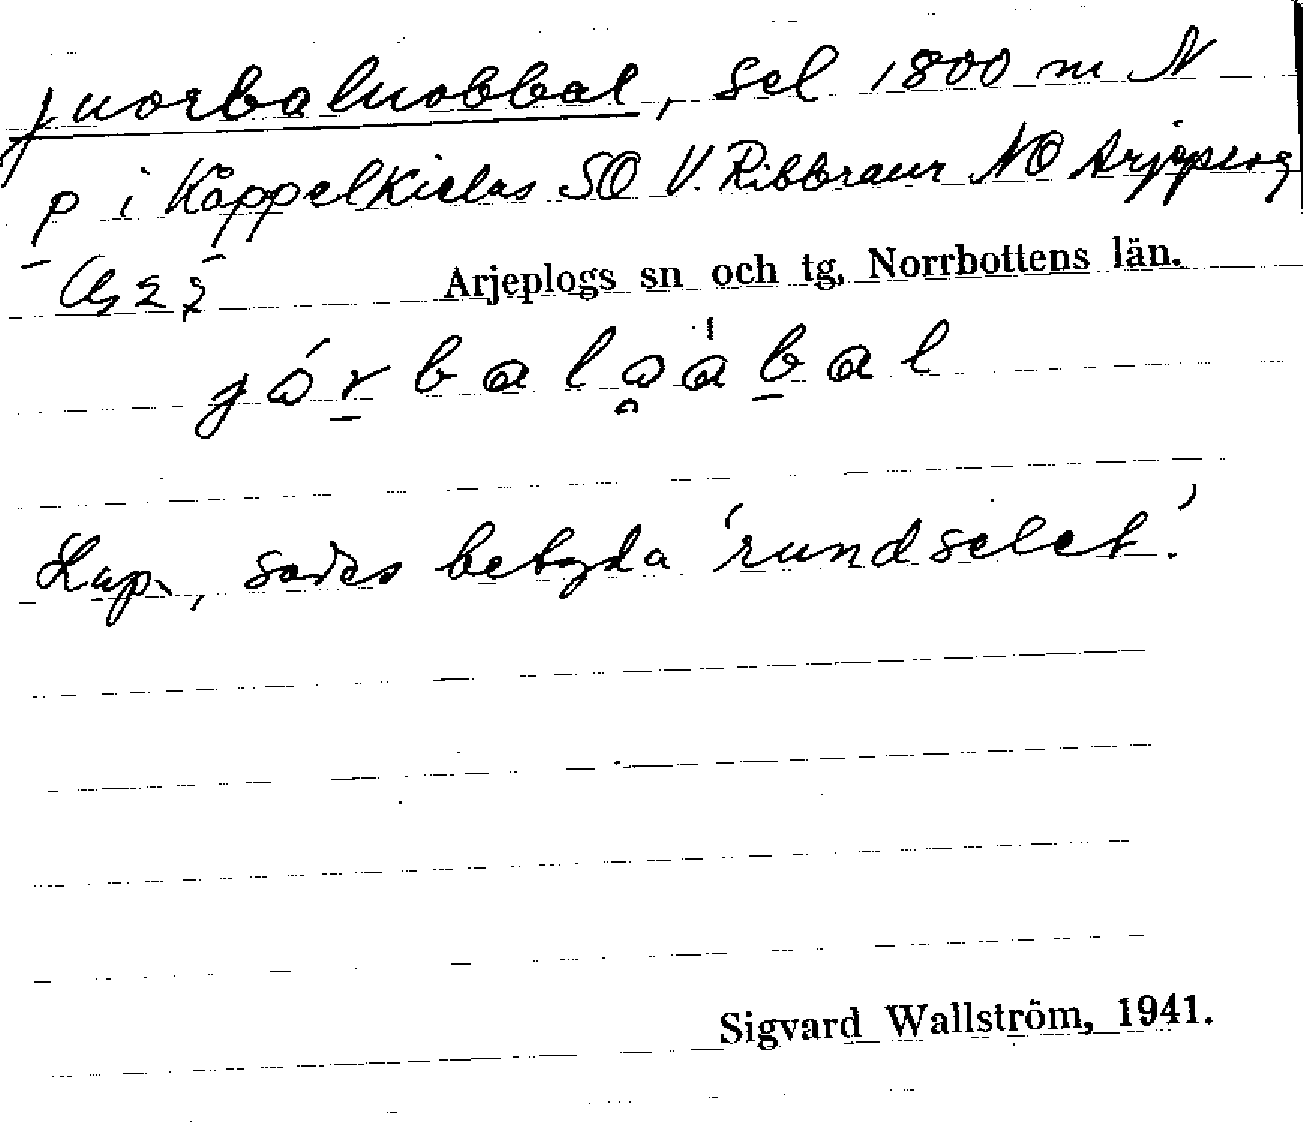 juorbaluobbal, sel 1800 m N
p i Kåppelkielas SO V. Ribbraur NO Arjeplog
Arjeplogs sn och tg, Norrbottens län.
Lap., sades betyda 'rundselet'.
Sigvard Wallström, 1941.